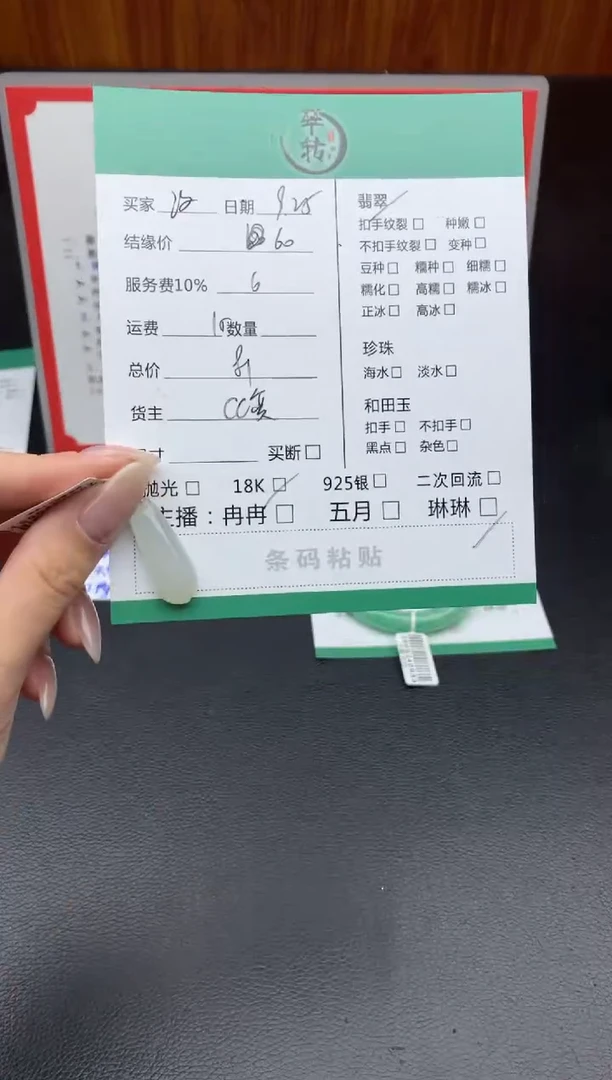 翠
砖
买家 日期 9.25
结缘价 60
服务费10% 6
运费 10 数量
总价
货主 CC
寸 买断☐
抛光☐ 18K☐ 925银☐ 二次回流☐
主播：冉冉☐ 五月☐ 琳琳☐
条码粘贴
翡翠
扣手纹裂☐ 种嫩☐
不扣手纹裂☐ 变种☐
豆种☐ 糯种☐ 细糯☐
糯化☐ 高糯☐ 糯冰☐
正冰☐ 高冰☐
珍珠
海水☐ 淡水☐
和田玉
扣手☐ 不扣手☐
黑点☐ 杂色☐